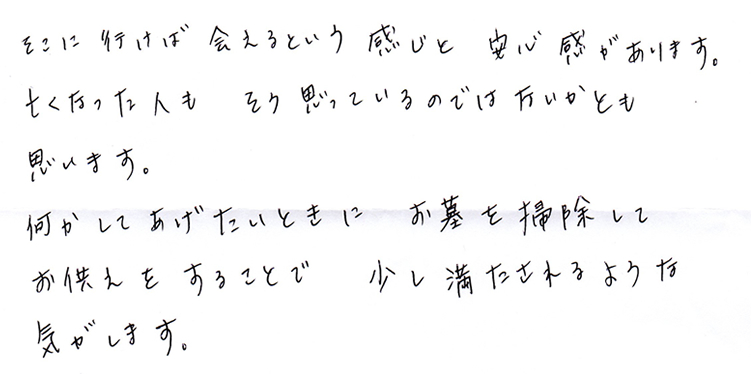 そこに行けば会えるという感じと安心感があります。
亡くなった人もそう思っているのではないかとも
思います。
何かしてあげたいときにお墓を掃除して
お供えをすることで少し満たされるような
気がします。